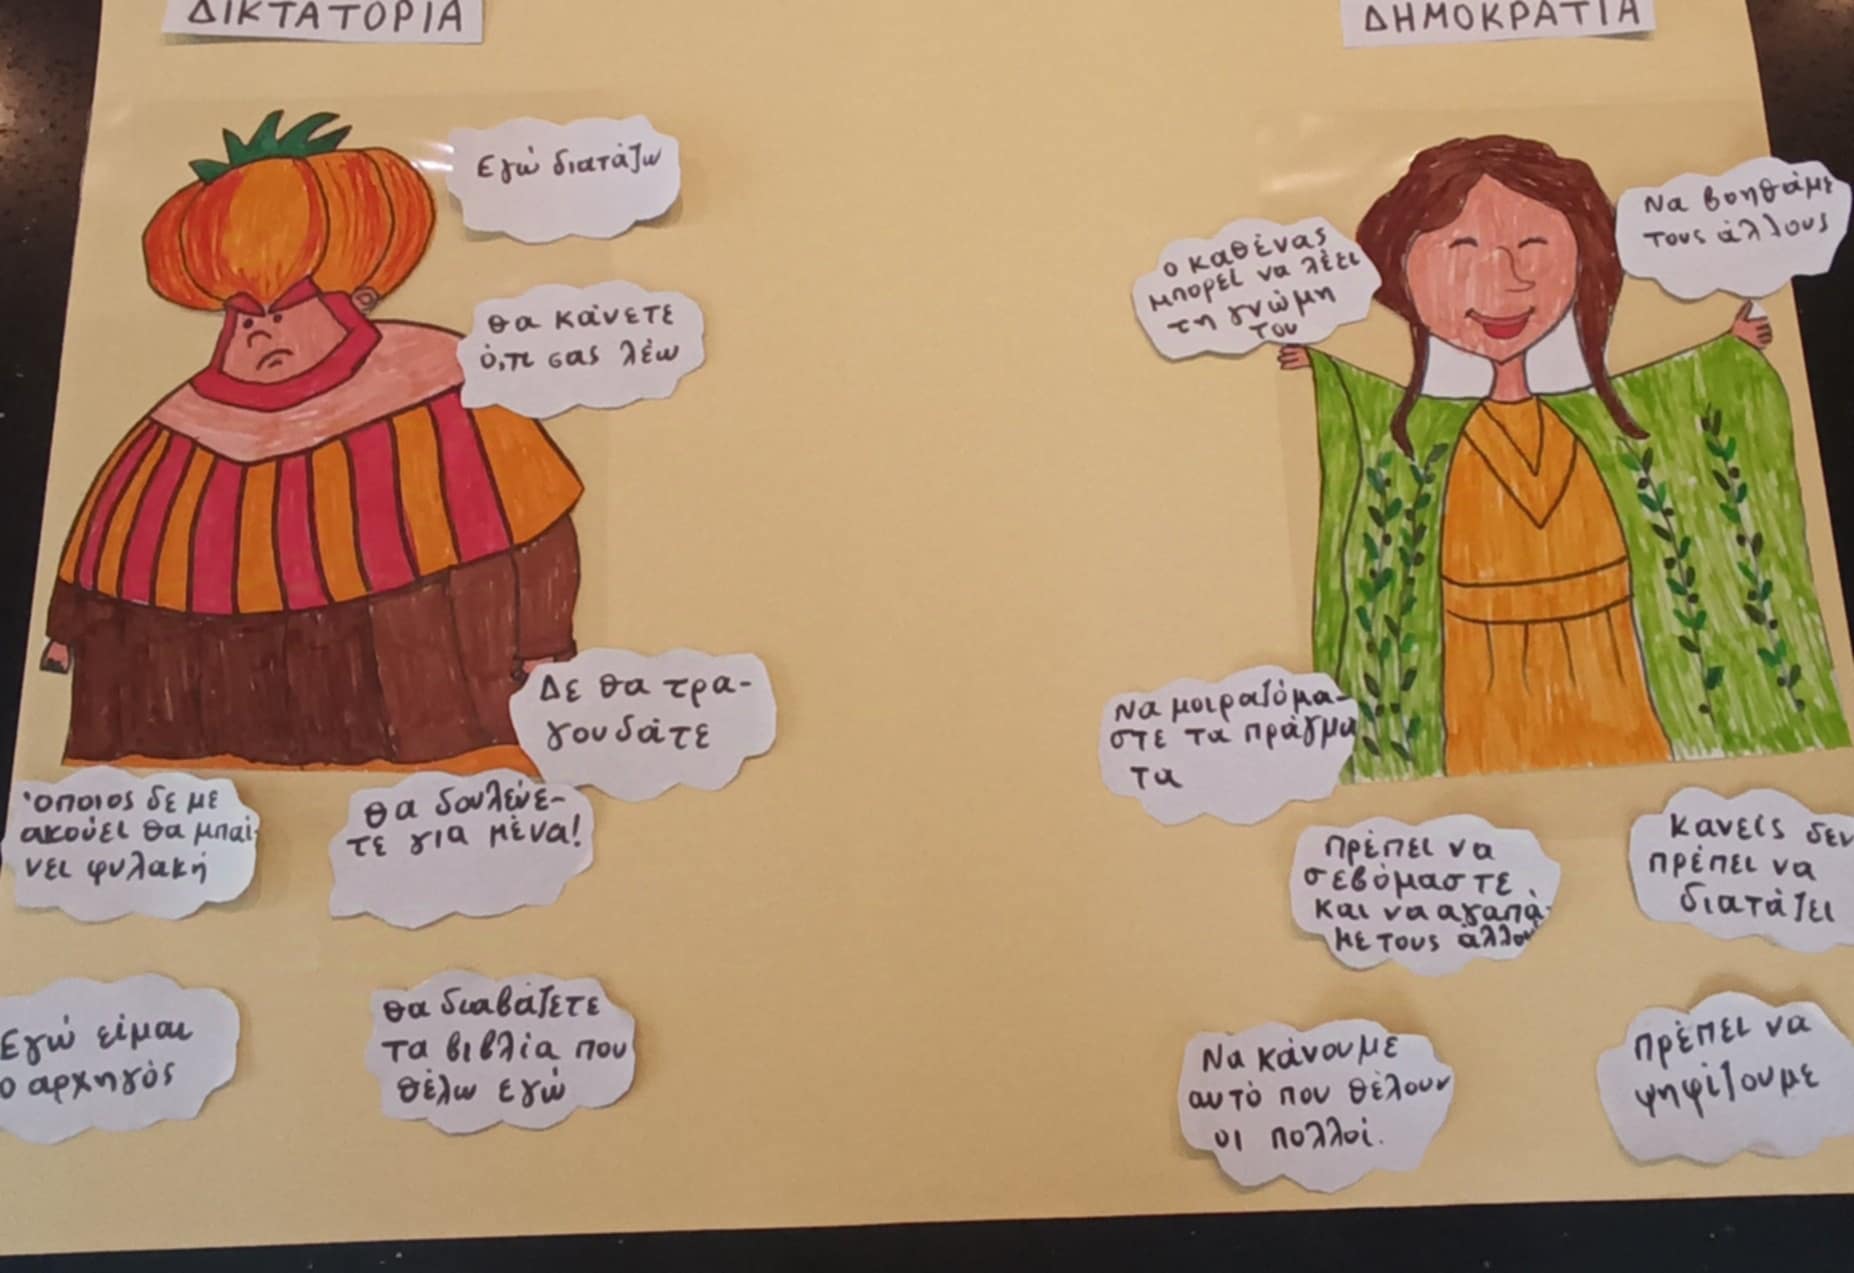 ΔΙΚΤΑΤΟΡΙΑ
Εγώ διατάζω
Θα κάνετε
ό,τι σας λέω
Δε θα τρα-
γουδάτε
Όποιος δε με
ακούει θα μπαί-
νει φυλακή
Θα δουλεύε-
τε για μένα!
Εγώ είμαι
ο αρχηγός
Θα διαβάζετε
τα βιβλία που
θέλω εγώ
ΔΗΜΟΚΡΑΤΙΑ
Ο καθένας
μπορεί να λέει
τη γνώμη
του
Να βοηθάμε
τους άλλους
Να μοιραζόμα-
στε τα πράγμα
τα
Πρέπει να
σεβόμαστε
και να αγαπά-
με τους άλλου
Κανείς δεν
πρέπει να
διατάζει
Να κάνουμε
αυτό που θέλουν
οι πολλοί.
Πρέπει να
ψηφίζουμε